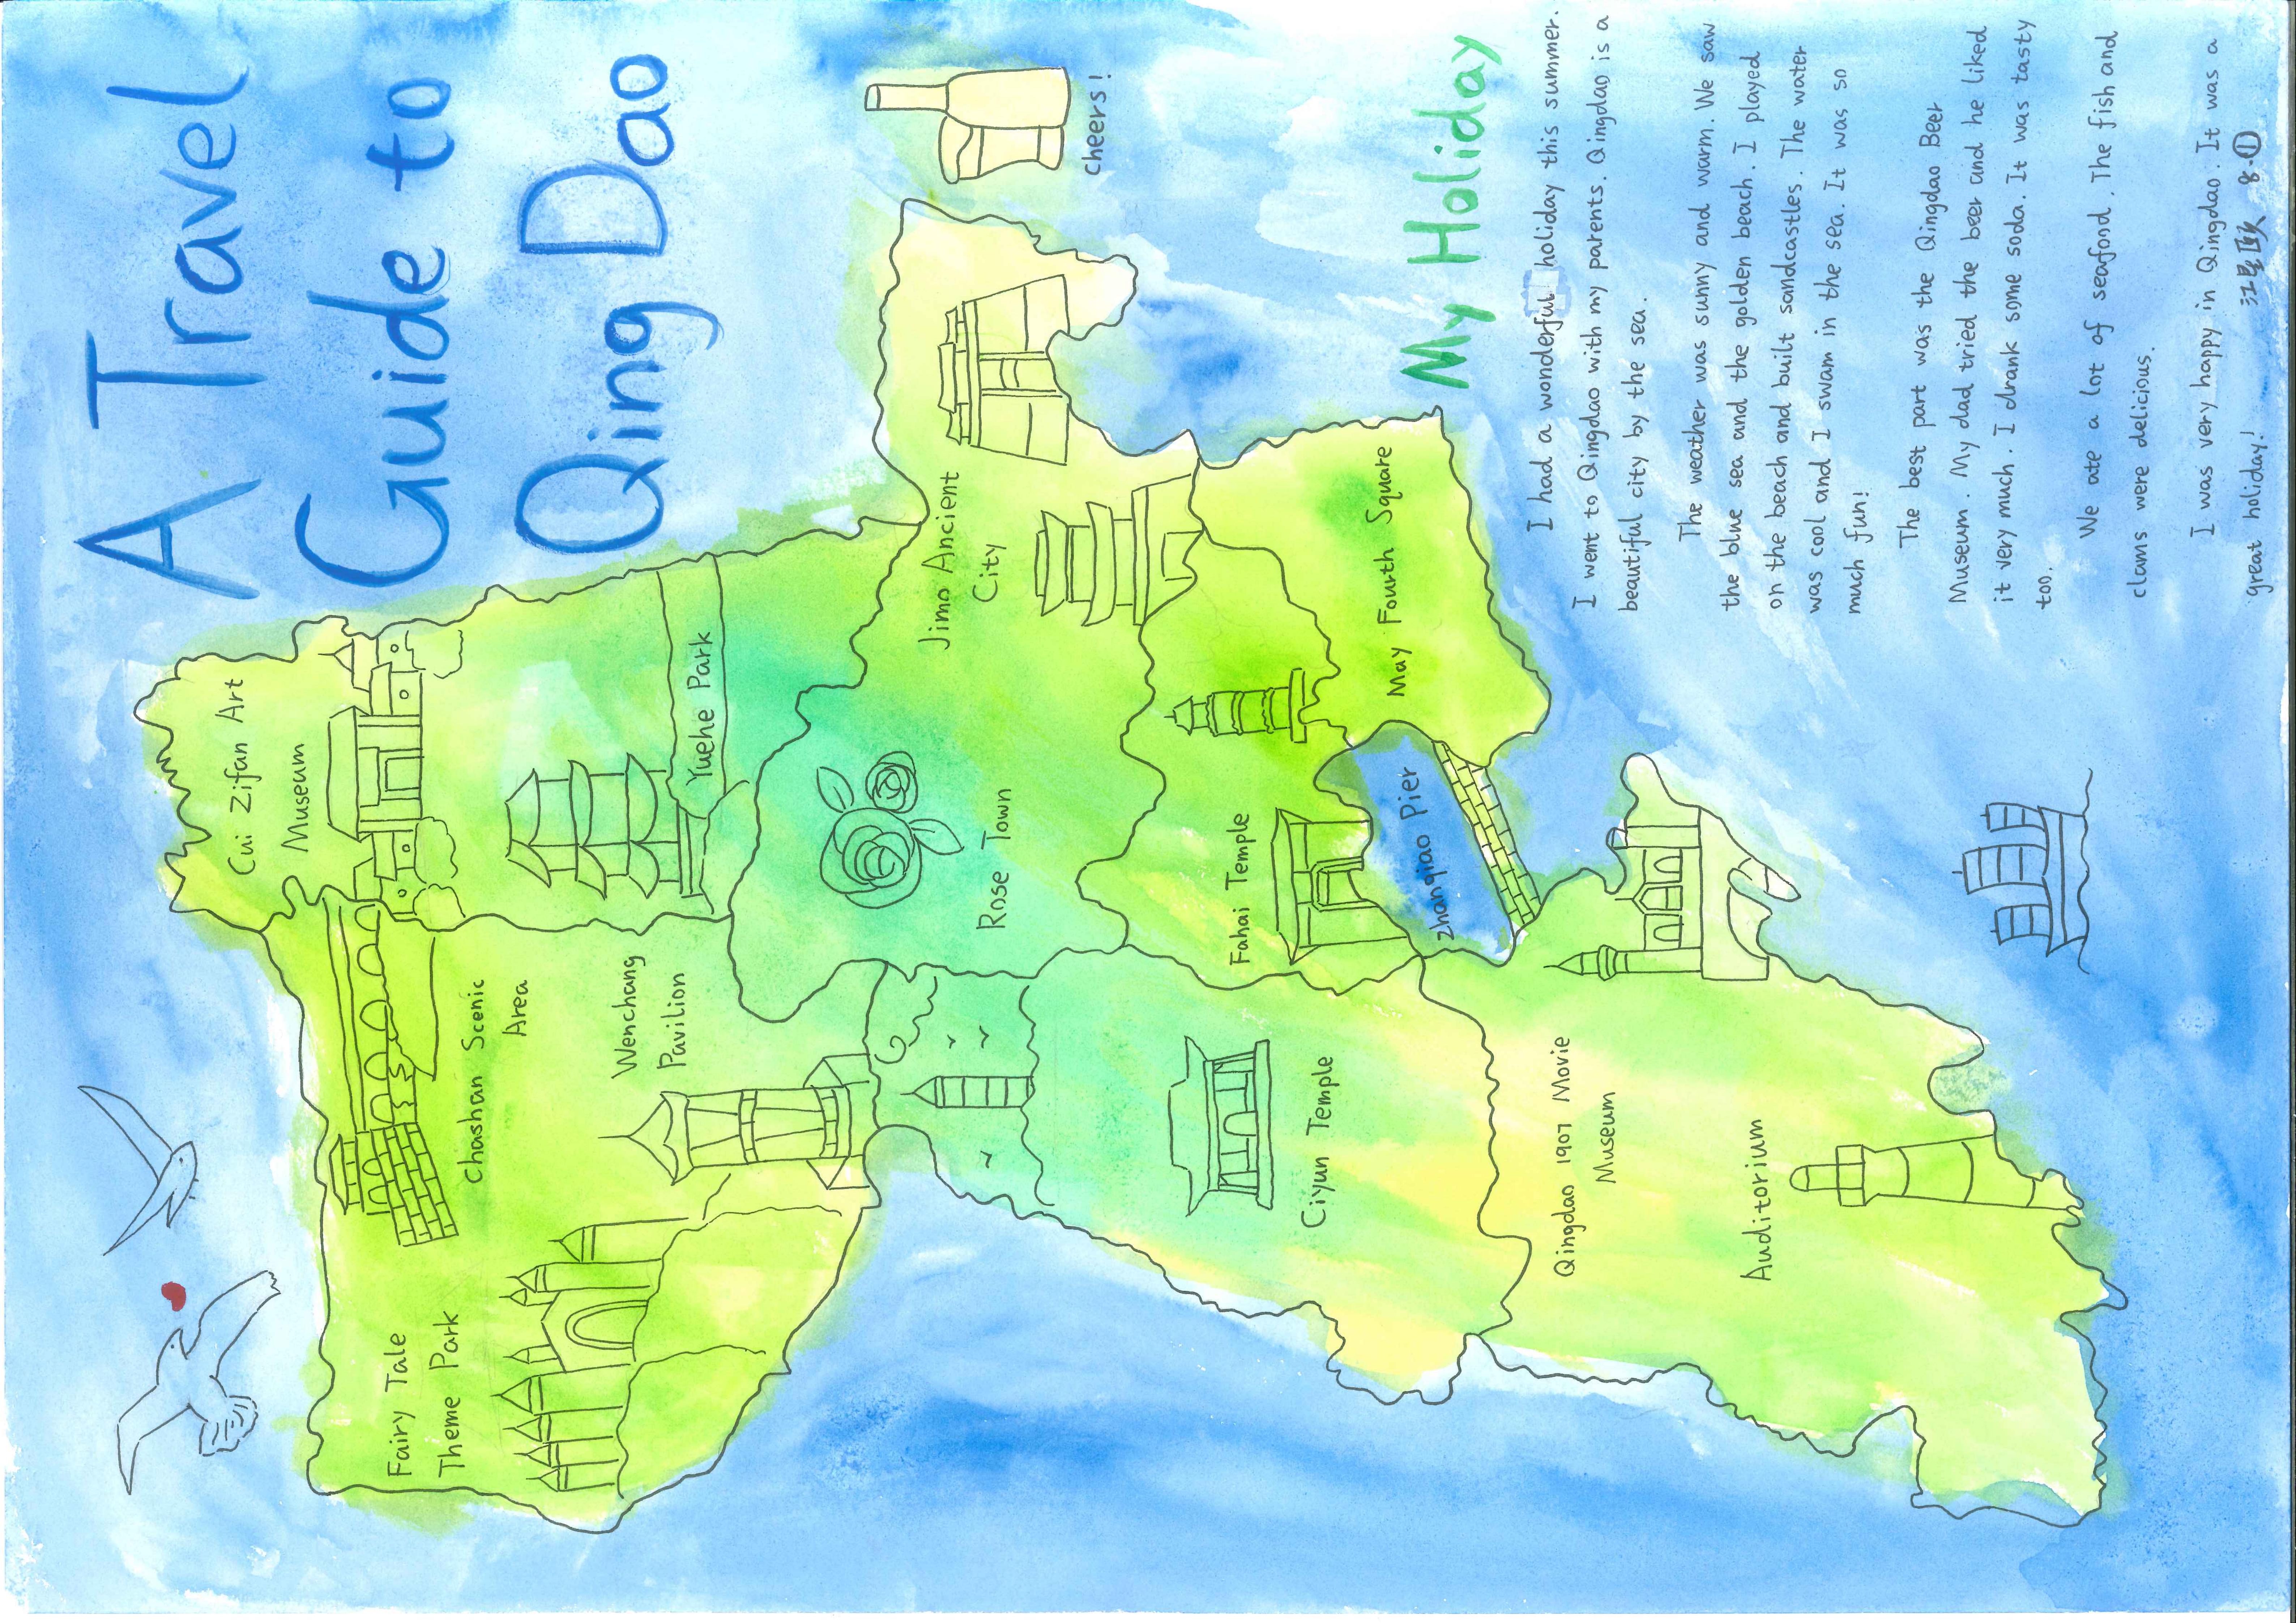 A Travel
Guide to
Qing Dao
Cui Zifan Art
Museum
Chashan Scenic
Area
Fairy Tale
Theme Park
Wenchang
Pavilion
Yuehe Park
Jimo Ancient
City
Rose Town
Cheers!
Fahai Temple
Ciyun Temple
May Fourth Square
Zhanqiao Pier
Qingdao 1907 Movie
Museum
Auditorium
My Holiday
I had a wonderful holiday this summer.
I went to Qingdao with my parents. Qingdao is a
beautiful city by the sea.
The weather was sunny and warm. We saw
the blue sea and the golden beach. I played
on the beach and built sandcastles. The water
was cool and I swam in the sea. It was so
much fun!
The best part was the Qingdao Beer
Museum. My dad tried the beer and he liked
it very much. I drank some soda. It was tasty
too.
We ate a lot of seafood. The fish and
clams were delicious.
I was very happy in Qingdao. It was a
great holiday!
8.①